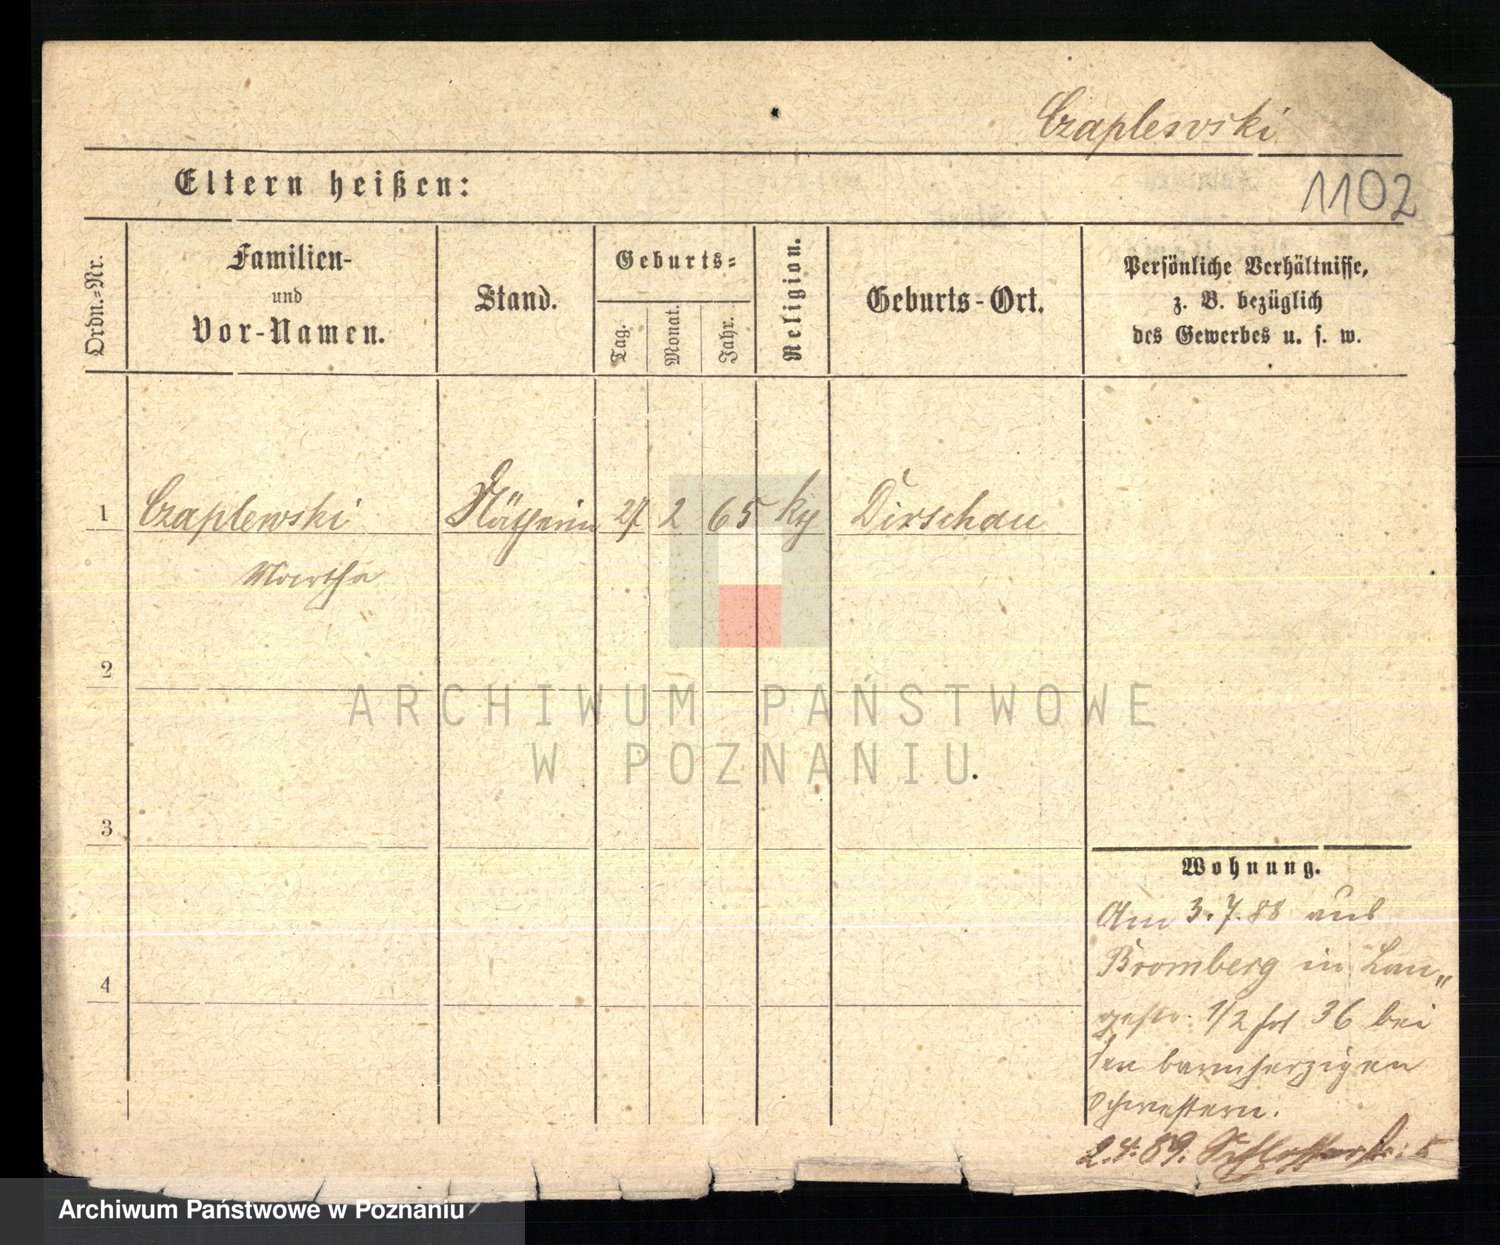 Czaplewski
Eltern heißen:
1102
Ordn.-Nr.
Familien-
und
Vor-Namen.
Stand.
Geburts-
Tag.
Monat.
Jahr.
Religion.
Geburts-Ort.
Persönliche Verhältnisse,
z. B. bezüglich
des Gewerbes u. s. w.
1 Czaplewski Nätherin 27 2 65 Dirschau
Martha
2
ARCHIWUM PAŃSTWOWE
W POZNANIU
3
4
Wohnung.
Am 3.7.88 aus
Bromberg in Lan„
gestr. 1/2 36 bei
den barmherzigen
Schwestern.
2.4.89. Schlosserstr: 5
Archiwum Państwowe w Poznaniu